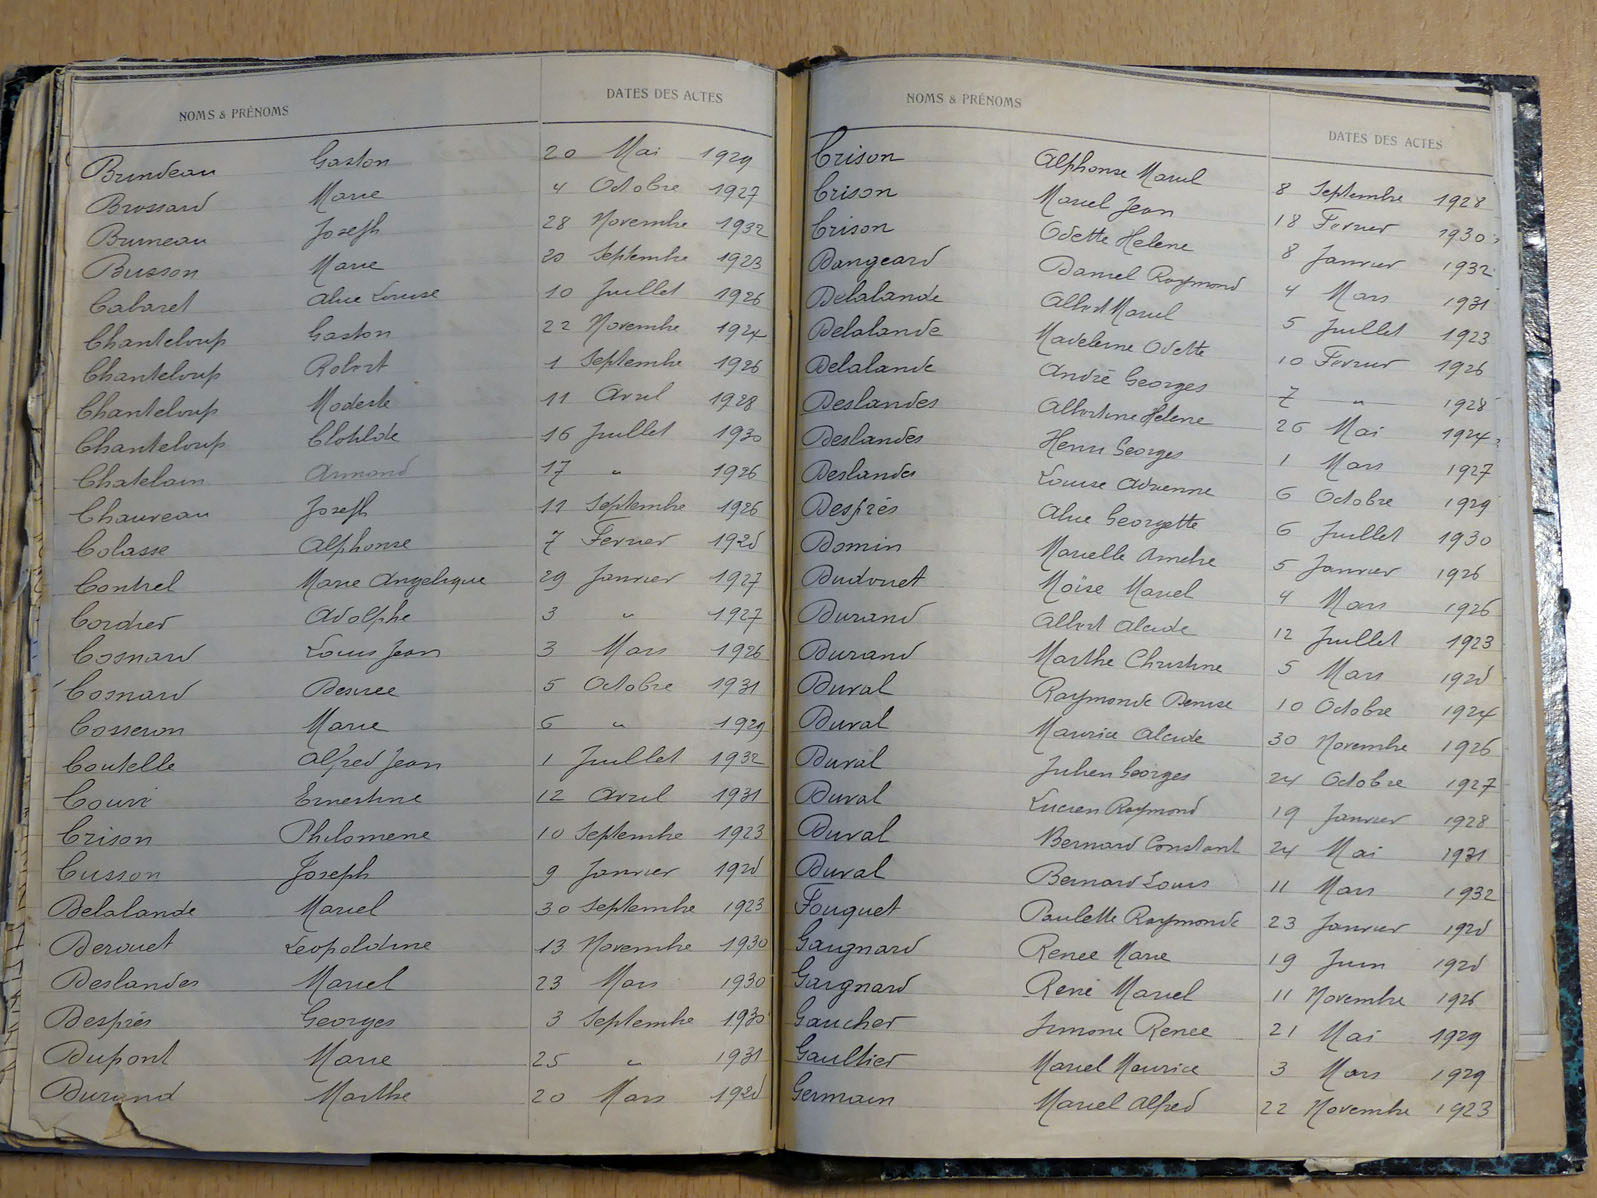 NOMS & PRÉNOMS DATES DES ACTES
Brindeau Gaston 20 Mai 1929
Brossard Marie 4 Octobre 1927
Bruneau Joseph 28 Novembre 1932
Busson Marie 20 Septembre 1923
Cabaret Alice Louise 10 Juillet 1926
Chanteloup Gaston 22 Novembre 1924
Chanteloup Robert 1 Septembre 1926
Chanteloup Modeste 11 Avril 1928
Chanteloup Clotilde 16 Juillet 1930
Chatelain Armand 17 " 1926
Chauveau Joseph 11 Septembre 1926
Colasse Alphonse 7 Fevrier 1925
Contrel Marie Angelique 29 Janvier 1927
Cordier Adolphe 3 " 1927
Cosnard Louis Jean 3 Mars 1926
Cosnard Desiree 5 Octobre 1931
Cosseron Marie 6 " 1929
Coutelle Alfred Jean 1 Juillet 1932
Ernestine 12 Avril 1931
Crison Philomene 10 Septembre 1923
Cusson Joseph 9 Janvier 1925
Delalande Marcel 30 Septembre 1923
Derouet Leopoldine 13 Novembre 1930
Deslandes Marcel 23 Mars 1930
Desprès Georges 3 Septembre 1930
Dupont Marie 25 " 1931
Durand Marthe 20 Mars 1925
NOMS & PRÉNOMS DATES DES ACTES
Crison Alphonse Marcel 8 Septembre 1928
Crison Marcel Jean 18 Fevrier 1930
Crison Odette Helene 8 Janvier 1932
Dangeard Daniel Raymond 4 Mars 1931
Delalande Albert Marcel 5 Juillet 1923
Delalande Madeleine Odette 10 Fevrier 1926
Delalande André Georges 7 " 1928
Deslandes Albertine Helene 26 Mai 1924
Deslandes Henri Georges 1 Mars 1927
Deslandes Louise Adrienne 6 Octobre 1929
Desprès Alice Georgette 6 Juillet 1930
Domin Marcelle Amelie 5 Janvier 1926
Dudouet Moïse Marcel 4 Mars 1926
Durand Albert Alcide 12 Juillet 1923
Durand Marthe Christine 5 Mars 1925
Duval Raymonde Denise 10 Octobre 1924
Duval Maurice Alcide 30 Novembre 1926
Duval Julien Georges 24 Octobre 1927
Duval Lucien Raymond 19 Janvier 1928
Duval Bernard Constant 24 Mai 1931
Duval Bernard Louis 11 Mars 1932
Fouquet Paulette Raymonde 23 Janvier 1925
Gaignard Renee Marie 19 Juin 1925
Gaignard René Marcel 11 Novembre 1926
Gaucher Simone Renee 21 Mai 1929
Gaultier Marcel Maurice 3 Mars 1929
Germain Marcel Alfred 22 Novembre 1923